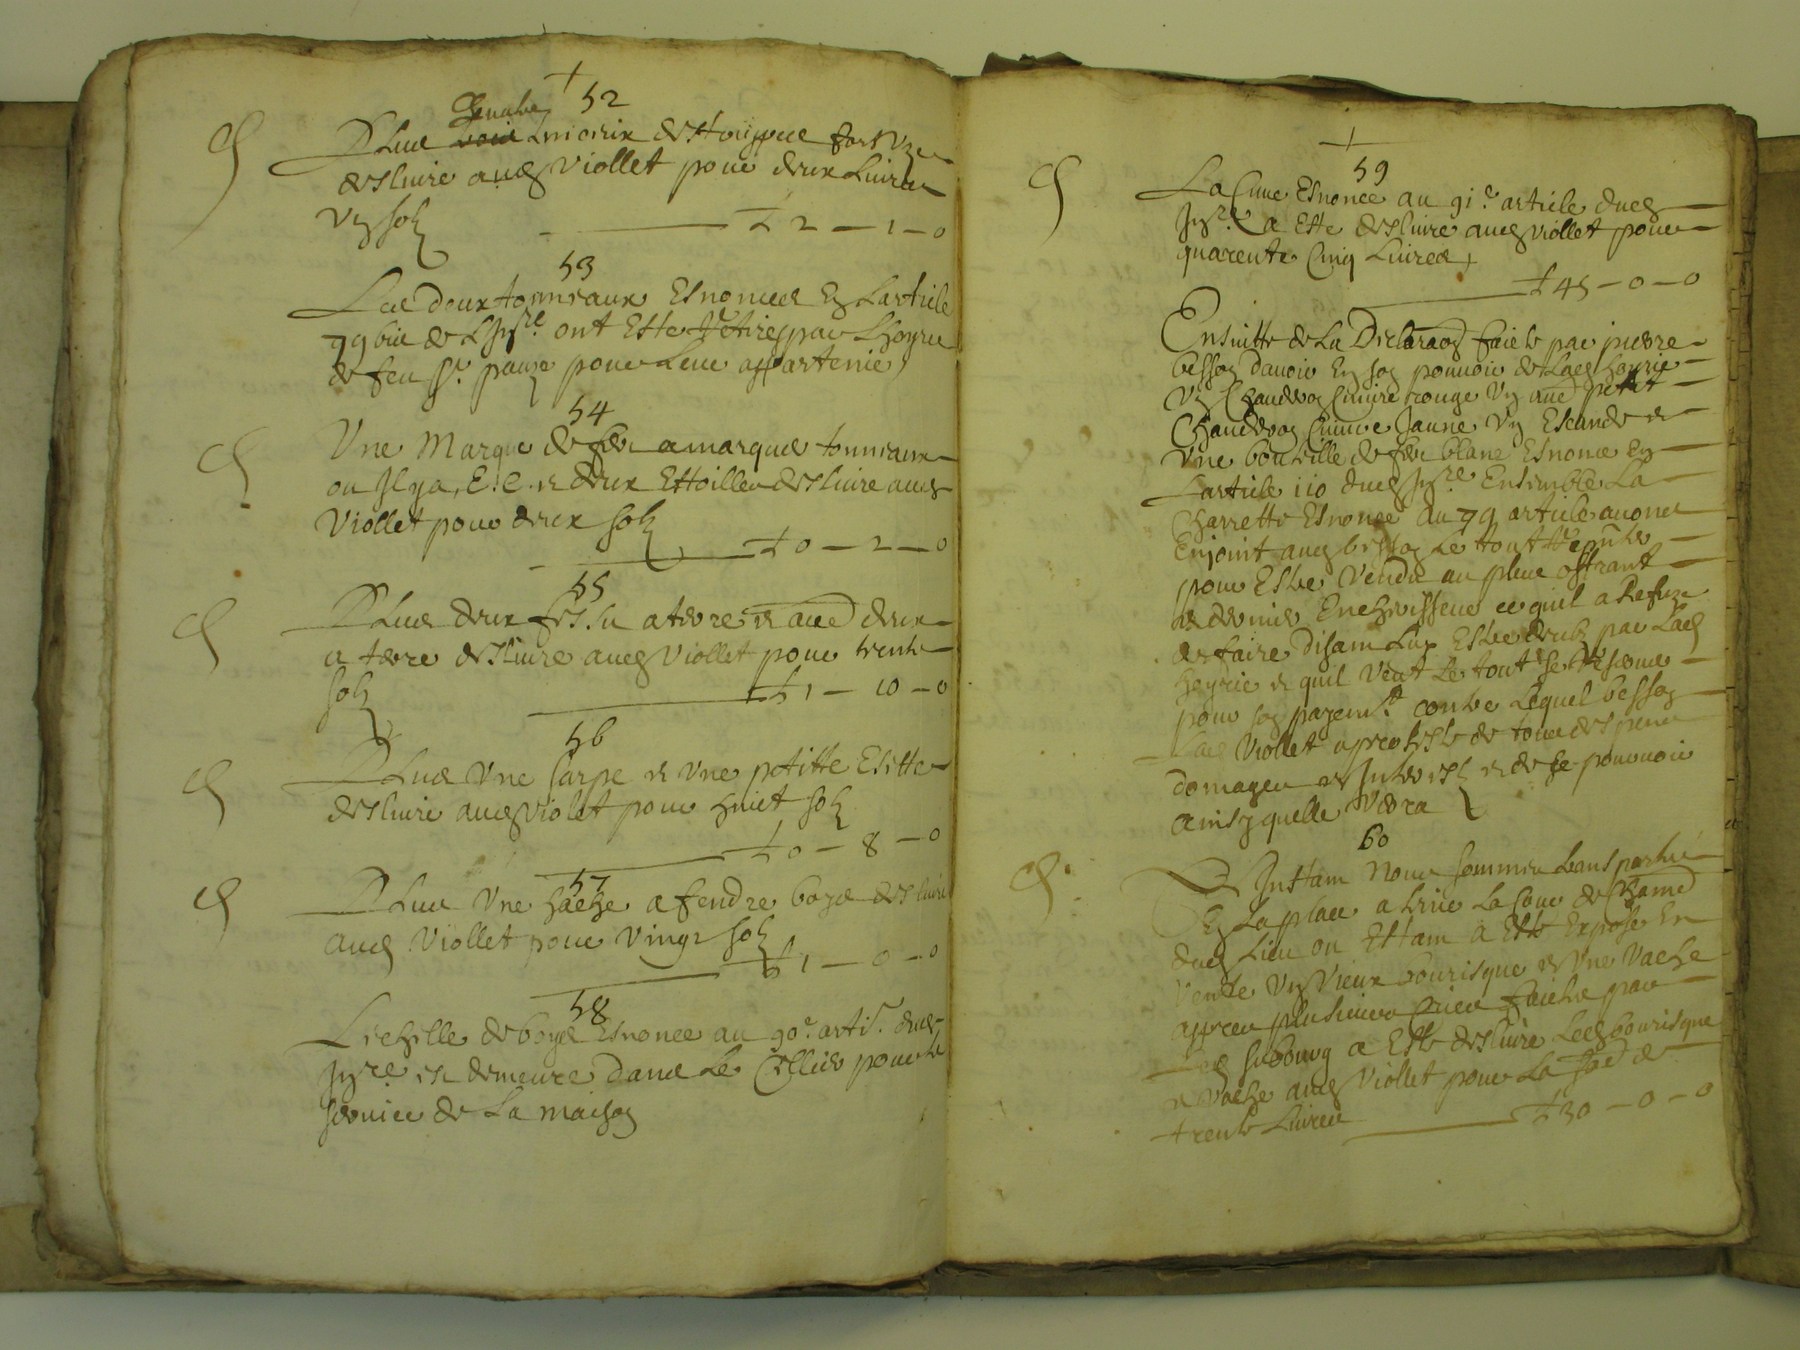 52
Plus deslivre aud Viollet pour deux Livres
ung solz £ 2 — 1 — 0
53
Les deux tonneaux Esnoncés En Larticle
79 bis de L'Inre ont Esté Retirés par L'hoyrie
de feu Sr pour Leur appartenir
54
Une Marque de fer a marquer tonneaux
ou Il y a, E. C. et deux Ettoilles deslivré aud
Viollet pour deux solz
£ 0 — 2 — 0
55
Plus deux a terre et deux
a terre deslivré aud Viollet pour trente
solz £ 1 — 10 — 0
56
Plus Une sarpe et Une petitte
deslivré aud Violet pour huict solz
£ 0 — 8 — 0
57
Plus Une hache a fendre boys deslivré
aud Viollet pour Vingt solz
£ 1 — 0 — 0
58
Leschelle de boys Esnoncé au 90e artie dud
Inre est demeuré dans Le Cellier pour le
service de La maison
59
La Cuve Esnoncé au 91e article dud
Inre a Esté deslivré aud Viollet pour
quarente Cinq Livres
£ 45 — 0 — 0
Ensuitte de La Declaraon faicte par pierre
besson davoir En son pouvoir de Lad hoyrie
Ung Chaudron Cuivre rouge Ung petit
Chaudron Cuivre Jaune Ung et
Une bouteille de fer blanc Esnoncé En
Larticle 110 dud Inre Ensemble La
Charrette Esnoncé au 79 article avons
Enjoint aud besson Le tout
pour Estre Vendu au plus offrant
et dernier Encherisseur ce quil a Refuzé
de faire disant Luy Estre deub par Lad
heyrie et quil Veut Le tout
pour son payemt contre Lequel besson
Led Viollet a protesté de tous despens
domages et Interestz et de se pourvoir
ainsy quelle Verra
60
Et Instam Nous sommes transportés
En La place a
dud Lieu ou Estam a Esté Exposé En
vente Ung Vieux bourisque et Une Vache
appres plusieurs Cries faictes par
Led a Esté deslivré Led bourisque
et vache aud Viollet pour La de
trente Livres £ 30 — 0 — 0